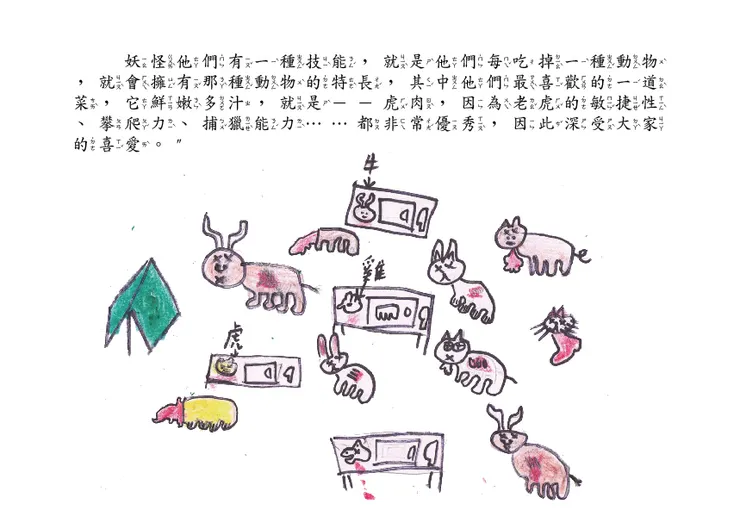 妖怪他們有一種技能，就是他們每吃掉一種動物
，就會擁有那種動物的特長，其中他們最喜歡的一道
菜，它鮮嫩多汁，就是——虎肉，因為老虎的敏捷性
、攀爬力、捕獵能力……都非常優秀，因此深受大家
的喜愛。”
牛
雞
虎